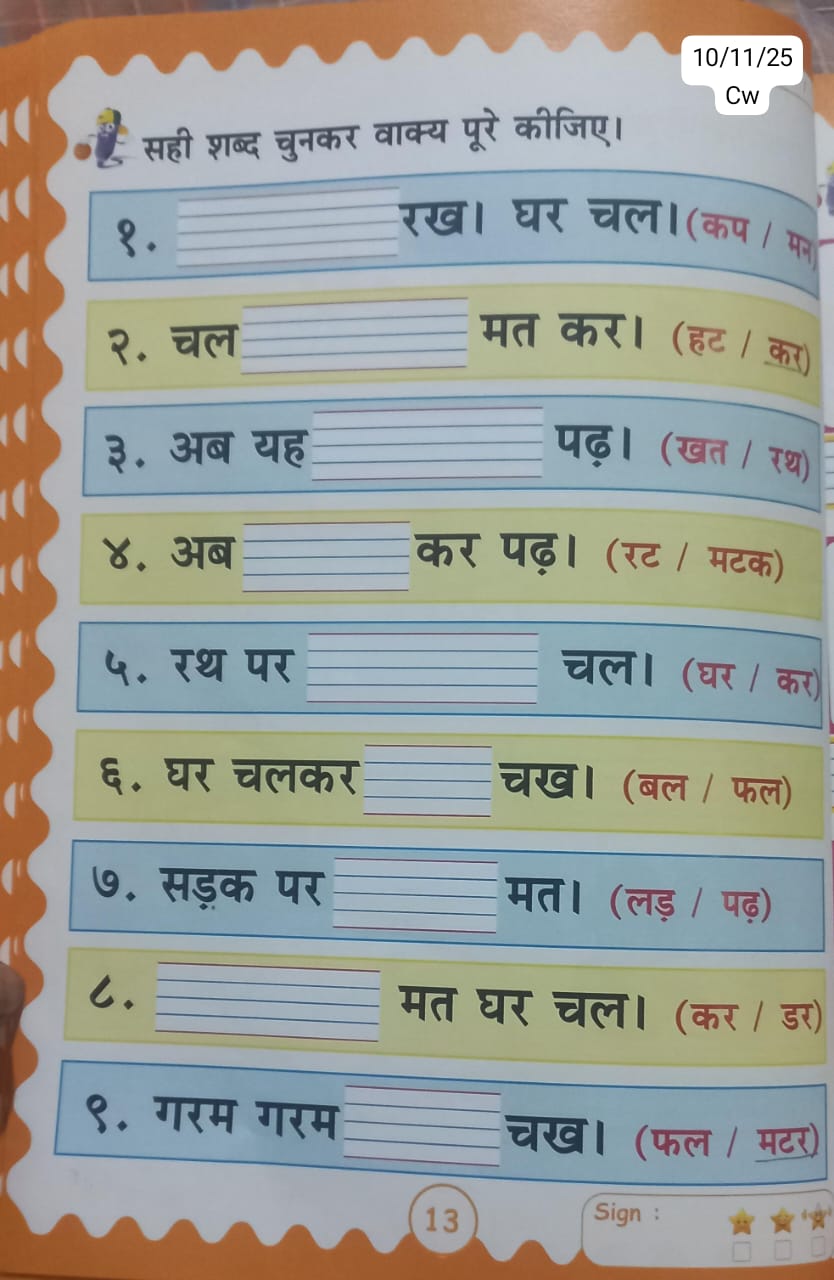 10/11/25
Cw
सही शब्द चुनकर वाक्य पूरे कीजिए।
१. रख। घर चल। (कप / मन)
२. चल मत कर। (हट / कर)
३. अब यह पढ़। (खत / रथ)
४. अब कर पढ़। (रट / मटक)
५. रथ पर चल। (घर / कर)
६. घर चलकर चख। (बल / फल)
७. सड़क पर मत। (लड़ / पढ़)
८. मत घर चल। (कर / डर)
९. गरम गरम चख। (फल / मटर)
13
Sign :